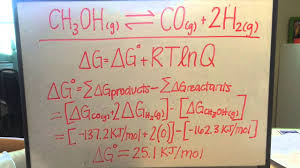 CH₃OH(g) ⇌ CO(g) + 2H₂(g)
ΔG = ΔG° + RTlnQ
ΔG° = ΣΔGproducts - ΣΔGreactants
= [ΔGCO(g) + 2ΔGH₂(g)] - [ΔGCH₃OH(g)]
= [-137.2 KJ/mol + 2(0)] - [-162.3 KJ/mol]
ΔG° = 25.1 KJ/mol